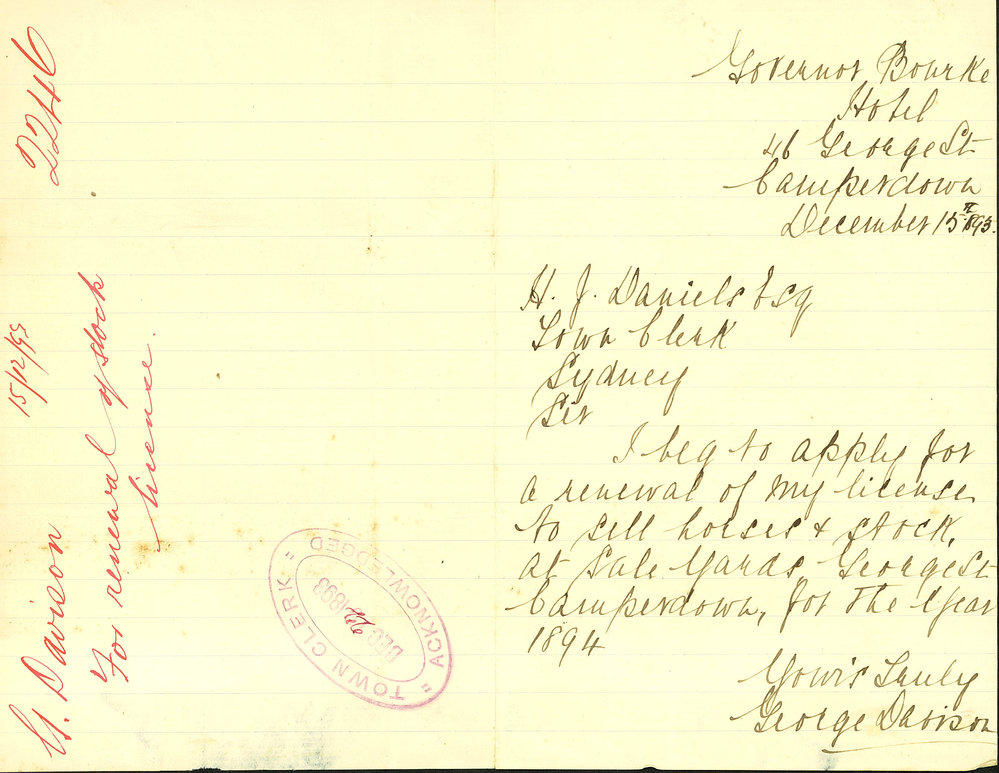 2246
G. Davison 15/12/93
For renewal of stock
license.
"TOWN CLERK"
DEC 1893
"ACKNOWLEDGED"
Governor Bourke
Hotel
46 George St
Camperdown
December 15th 1893.
H. J. Daniels Esq
Town Clerk
Sydney
Sir
I beg to apply for
a renewal of my license
to sell horses & stock,
at Sale Yards George St
Camperdown, for the Year
1894
Yours Truly
George Davison